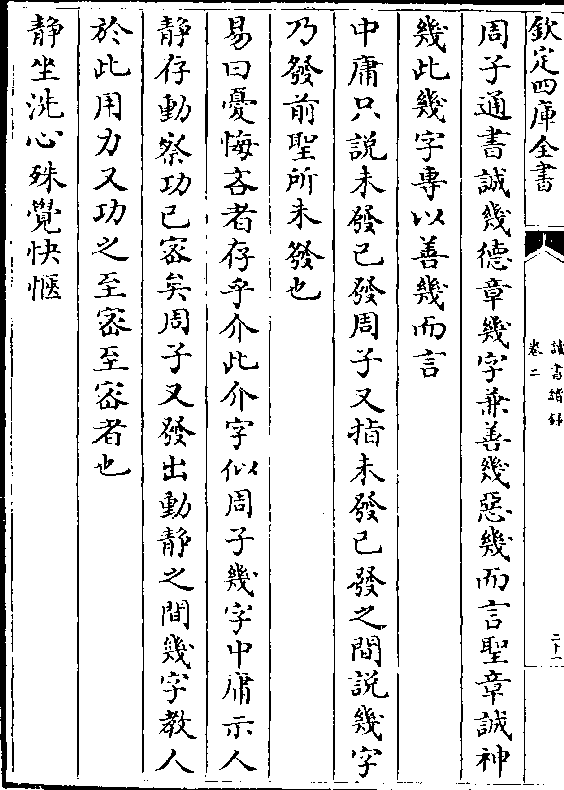 欽定四庫全書
讀書續録
卷二
二十一
周子通書誠幾德章幾字兼善幾惡幾而言聖章誠神
幾此幾字專以善幾而言
中庸只說未發已發周子又指未發已發之間說幾字
乃發前聖所未發也
易曰憂悔吝者存乎介此介字似周子幾字中庸示人
静存動察功已宻矣周子又發出動静之間幾字教人
於此用力又功之至宻至宻者也
静坐洗心殊覺快愜